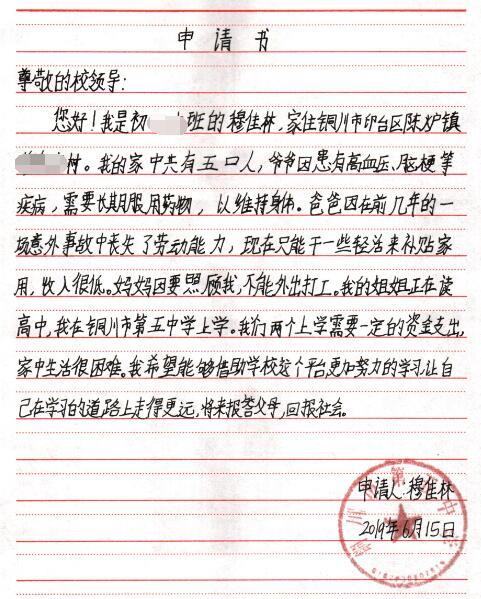 申请书
尊敬的校领导:
您好!我是初 班的穆佳林,家住铜川市印台区陈炉镇
村。我的家中共有五口人,爷爷因患有高血压、脑梗等
疾病,需要长期服用药物,以维持身体。爸爸因在前几年的一
场意外事故中丧失了劳动能力,现在只能干一些轻活来补贴家
用,收入很低。妈妈因要照顾我,不能外出打工。我的姐姐正在读
高中,我在铜川市第五中学上学。我们两个上学需要一定的资金支出,
家中生活很困难。我希望能够借助学校这个平台更加努力的学习让自
己在学习的道路上走得更远,将来报答父母,回报社会。
申请人:穆佳林
2019年6月15日